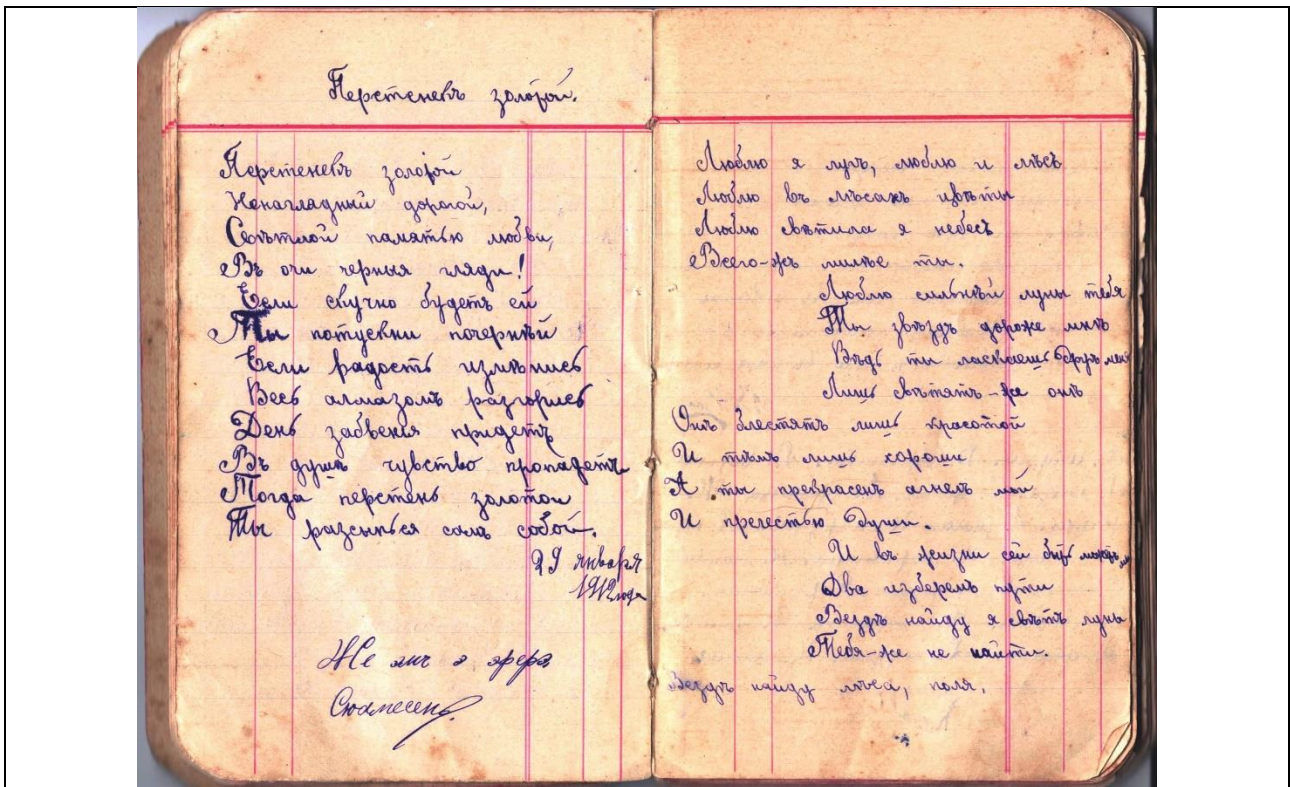 Перстенекъ золотой.
Перстенекъ золотой
Ненаглядный дорогой,
Свѣтлой памятью любви,
Въ очи черныя гляди!
Если скучно будетъ ей
Ты потускни почернѣй
Если радость измѣнись
Весь алмазомъ разгорись
День забвенья придетъ
Въ душѣ чувство пропадетъ
Тогда перстень золотой
Ты разсыпься самъ собой.
29 января
1912 года
Люблю я лугъ, люблю и лѣсъ
Люблю въ лѣсахъ цвѣты
Люблю свѣтила я небесъ
Всего-жъ милѣе ты.
Люблю сильнѣй луны тебя
Ты звѣздъ дороже мнѣ
Вѣдь ты ласкаешь другъ мой
Лишь свѣтятъ-же онѣ
Онѣ блестятъ лишь красотой
И тѣмъ лишь хороши
А ты прекрасенъ ангелъ мой
И прелестью души.
И въ жизни сей быть можетъ
Два изберемъ пути
Вездѣ найду я свѣтъ луны
Тебя-же не найти.
Вездѣ найду лѣса, поля,